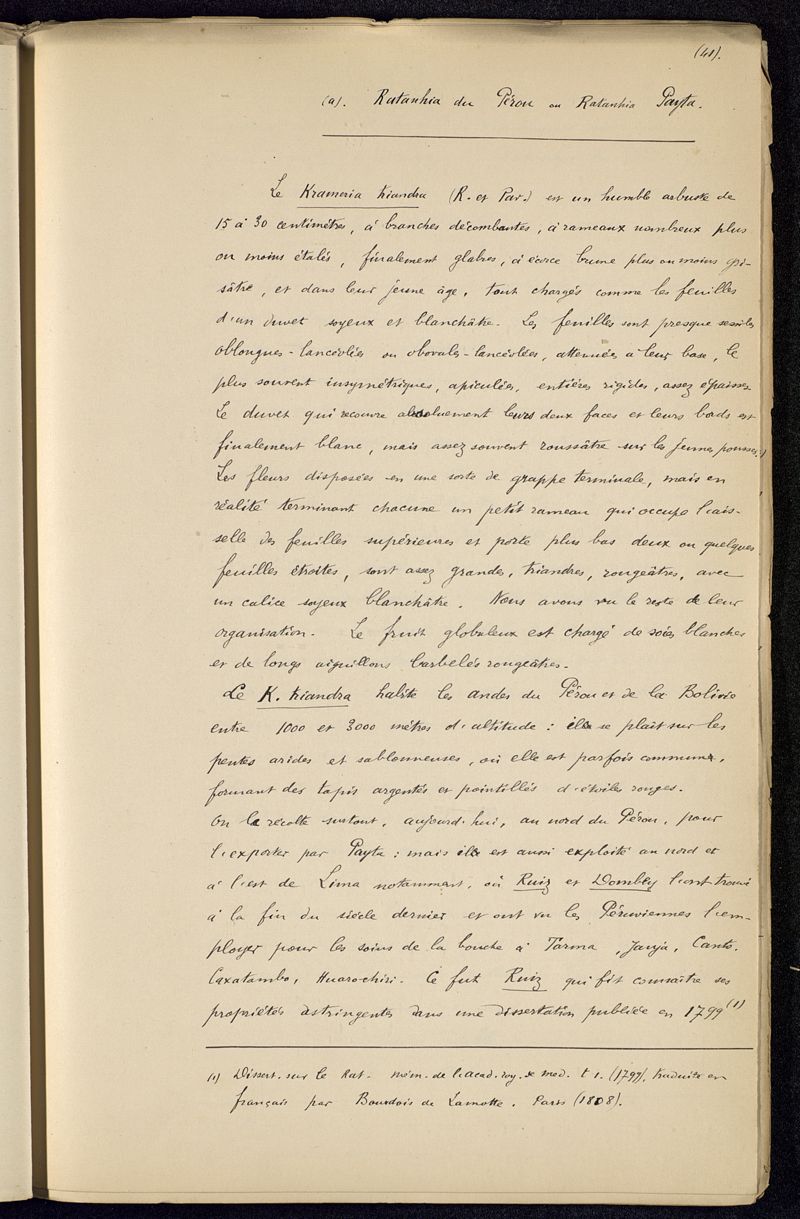 (41).
(a). Ratanhia du Pérou ou Ratanhia Payta.
Le Krameria triandra (R. et Pav.) est un humble arbuste de
15 à 30 centimètres, à branches décombantes, à rameaux nombreux plus
ou moins étalés, finalement glabres, à écorce brune plus ou moins gri-
sâtre, et dans leur jeune âge, tout chargés comme les feuilles
d'un duvet soyeux et blanchâtre. Les feuilles sont presque sessiles
oblongues-lancéolées ou obovales-lancéolées, attenuées à leur base, le
plus souvent insymétriques, apiculées, entières rigides, assez épaisses.
Le duvet qui recouvre absoluement leurs deux faces et leurs bords est
finalement blanc, mais assez souvent roussâtre sur les jeunes pousses.
Les fleurs disposées en une sorte de grappe terminale, mais en
réalité terminant chacune un petit rameau qui occupe l'ais-
selle des feuilles supérieures et porte plus bas deux ou quelques
feuilles étroites, sont assez grandes, triandres, rougeâtres, avec
un calice soyeux blanchâtre. Nous avons vu le reste de leur
organisation. Le fruit globuleux est chargé de soies blanches
et de longs aiguillons barbelés rougeâtres.
Le K. triandra habite les andes du Pérou et de la Bolivie
entre 1000 et 3000 mètres d'altitude : il se plait sur les
pentes arides et sablonneuses, où elle est parfois commune,
formant des tapis argentés et pointillés d'étoiles rouges.
On le récolte surtout, aujourd'hui, au nord du Pérou, pour
l'exporter par Payta : mais il est aussi exploité au nord et
à l'est de Lima notamment, où Ruiz et Dombey l'ont trouvé
à la fin du siècle dernier et ont vu les Péruviennes l'em-
ployer pour les soins de la bouche à Tarma, Jauja, Canto,
Caxatambo, Huarochiri. Ce fut Ruiz qui fit connaître ses
propriétés astringentes dans une dissertation publiée en 1799 (1)
(1) Dissert. sur le Rat. mém. de l'acad. roy. de med. t 1. (1799), traduite en
français par Bourdois de Lamotte. Paris (1808).